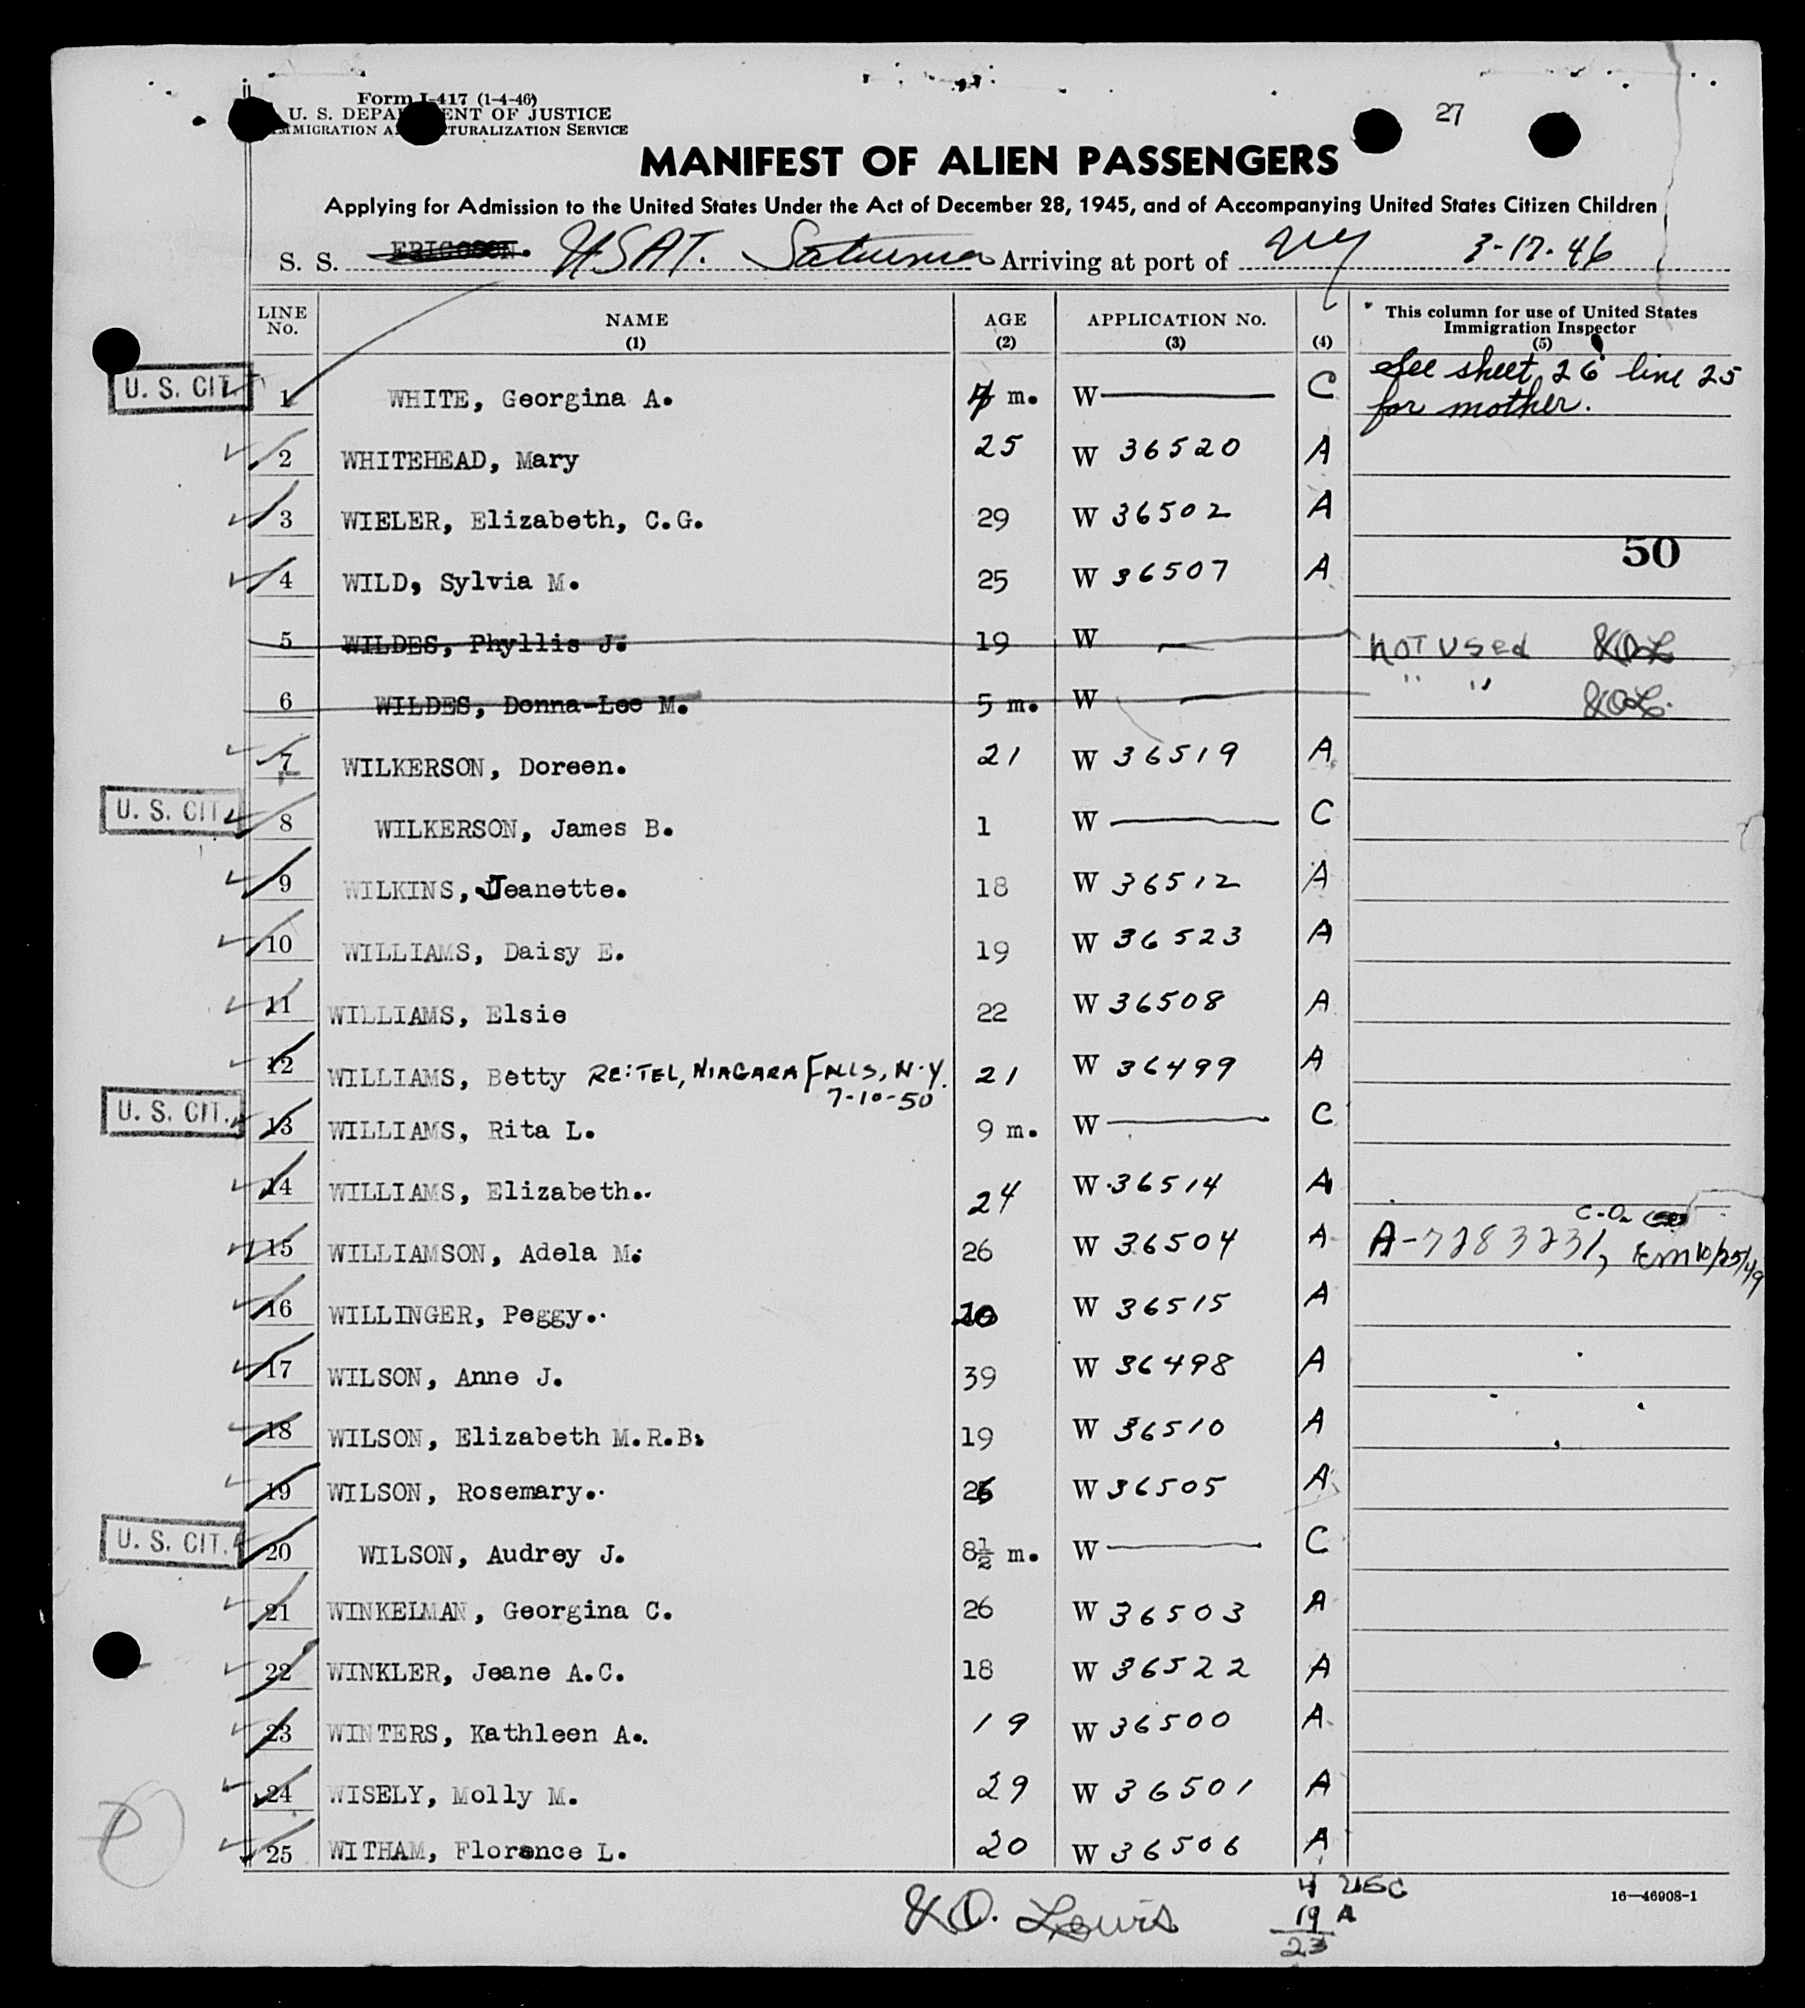 27
Form I-417 (1-4-46)
U. S. DEPARTMENT OF JUSTICE
IMMIGRATION AND NATURALIZATION SERVICE
MANIFEST OF ALIEN PASSENGERS
Applying for Admission to the United States Under the Act of December 28, 1945, and of Accompanying United States Citizen Children
S. S. ERICSSON. USAT. Saturnia Arriving at port of NY 3-17-46
LINE No. NAME (1) AGE (2) APPLICATION No. (3) (4) This column for use of United States Immigration Inspector (5)
U. S. CIT. 1 WHITE, Georgina A. m. W C See sheet 26 line 25 for mother.
2 WHITEHEAD, Mary 25 W 36520 A
3 WIELER, Elizabeth, C.G. 29 W 36502 A
50
4 WILD, Sylvia M. 25 W 36507 A
5 WILDES, Phyllis J. 19 W NOT USED KOL
6 WILDES, Donna-Lee M. 5 m. W " " KOL.
7 WILKERSON, Doreen. 21 W 36519 A
U. S. CIT. 8 WILKERSON, James B. 1 W C
9 WILKINS, Jeanette. 18 W 36512 A
10 WILLIAMS, Daisy E. 19 W 36523 A
11 WILLIAMS, Elsie 22 W 36508 A
12 WILLIAMS, Betty RE: TEL, NIAGARA FALLS, N.Y. 7-10-50 21 W 36499 A
U. S. CIT. 13 WILLIAMS, Rita L. 9 m. W C
14 WILLIAMS, Elizabeth. 24 W 36514 A
15 WILLIAMSON, Adela M. 26 W 36504 A C.O. A-7283231, 10/25/49
16 WILLINGER, Peggy. 20 W 36515 A
17 WILSON, Anne J. 39 W 36498 A
18 WILSON, Elizabeth M.R.B. 19 W 36510 A
19 WILSON, Rosemary. 26 W 36505 A
U. S. CIT. 20 WILSON, Audrey J. 8½ m. W C
21 WINKELMAN, Georgina C. 26 W 36503 A
22 WINKLER, Jeane A.C. 18 W 36522 A
23 WINTERS, Kathleen A. 19 W 36500 A
24 WISELY, Molly M. 29 W 36501 A
25 WITHAM, Florence L. 20 W 36506 A
K O. Lewis
4 USC
19 A
23
16—46908-1